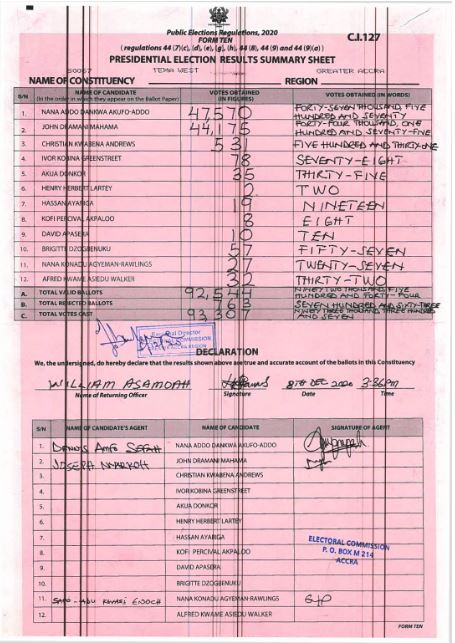 Public Elections Regulations, 2020
FORM TEN
C.I.127
(regulations 44 (7)(c), (d), (e), (g), (h), 44 (8), 44 (9) and 44 (9)(a))
PRESIDENTIAL ELECTION RESULTS SUMMARY SHEET
TEMA WEST GREATER ACCRA
NAME OF CONSTITUENCY REGION
S/N NAME OF CANDIDATE (In the order in which they appear on the Ballot Paper) VOTES OBTAINED (IN FIGURES) VOTES OBTAINED (IN WORDS)
1. NANA ADDO DANKWA AKUFO-ADDO 47,570 FORTY-SEVEN THOUSAND, FIVE HUNDRED AND SEVENTY
2. JOHN DRAMANI MAHAMA 44,175 FORTY-FOUR THOUSAND, ONE HUNDRED AND SEVENTY-FIVE
3. CHRISTIAN KWABENA ANDREWS 531 FIVE HUNDRED AND THIRTY-ONE
4. IVOR KOBINA GREENSTREET 78 SEVENTY-EIGHT
5. AKUA DONKOR 35 THIRTY-FIVE
6. HENRY HERBERT LARTEY 2 TWO
7. HASSAN AYARIGA 19 NINETEEN
8. KOFI PERCIVAL AKPALOO 8 EIGHT
9. DAVID APASERA 10 TEN
10. BRIGITTE DZOGBENUKU 57 FIFTY-SEVEN
11. NANA KONADU AGYEMAN-RAWLINGS 27 TWENTY-SEVEN
12. ALFRED KWAME ASIEDU WALKER 32 THIRTY-TWO
A. TOTAL VALID BALLOTS 92,544 NINETY TWO THOUSAND, FIVE HUNDRED AND FORTY-FOUR
B. TOTAL REJECTED BALLOTS 763 SEVEN HUNDRED AND SIXTY-THREE
C. TOTAL VOTES CAST 93,307 NINETY THREE THOUSAND, THREE HUNDRED AND SEVEN
Regional Director
DECLARATION
We, the undersigned, do hereby declare that the results shown above are true and accurate account of the ballots in this Constituency
WILLIAM ASAMOAH 8TH DEC 2020 3:36PM
Name of Returning Officer Signature Date Time
S/N NAME OF CANDIDATE'S AGENT NAME OF CANDIDATE SIGNATURE OF AGENT
1. NANA ADDO DANKWA AKUFO-ADDO
2. JOSEPH NYARKOH JOHN DRAMANI MAHAMA
3. CHRISTIAN KWABENA ANDREWS
4. IVOR KOBINA GREENSTREET
5. AKUA DONKOR
6. HENRY HERBERT LARTEY
7. HASSAN AYARIGA
8. KOFI PERCIVAL AKPALOO
9. DAVID APASERA
10. BRIGITTE DZOGBENUKU
11. NANA KONADU AGYEMAN-RAWLINGS
12. ALFRED KWAME ASIEDU WALKER
ELECTORAL COMMISSION
P. O. BOX M 214
ACCRA
FORM TEN